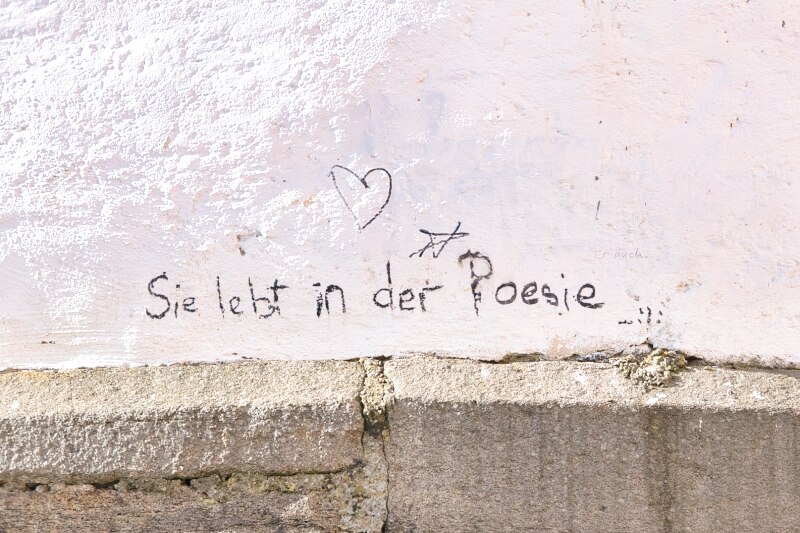 Er auch.
Sie lebt in der Poesie